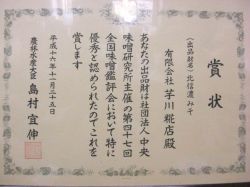 賞状
(出品財名) 北信濃みそ
有限会社 芋川糀店殿
あなたの出品財は社団法人中央
味噌研究所主催の第四十七回
全国味噌鑑評会において特に
優秀と認められたのでこれを
賞します
平成十六年十一月二十五日
農林水産大臣 島村宜伸